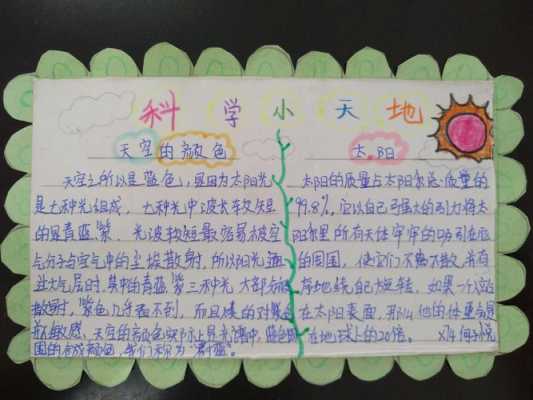 科学小天地
天空的颜色
天空之所以是蓝色,是因为太阳光
是七种光组成,七种光中波长较短
的是青蓝紫,光波较短最容易被空
气分子与空气中的尘埃散射,所以阳光通
过大气层时,其中的青蓝紫三种光大部分被
散射,紫色几乎看不到,而且人的对紫色
敏感。天空的颜色实际上是光谱中蓝色
围的合成颜色,我们称为"青蓝"。
太阳
太阳的质量占太阳系总质量的
99.8%,它以自己强大的引力将太
阳系里所有天体牢牢的吸引在
的周围,使它们不离不散,井有
有地绕自己旋转。如果一个人
在太阳表面,那么他的体重会是
在地球上的20倍。